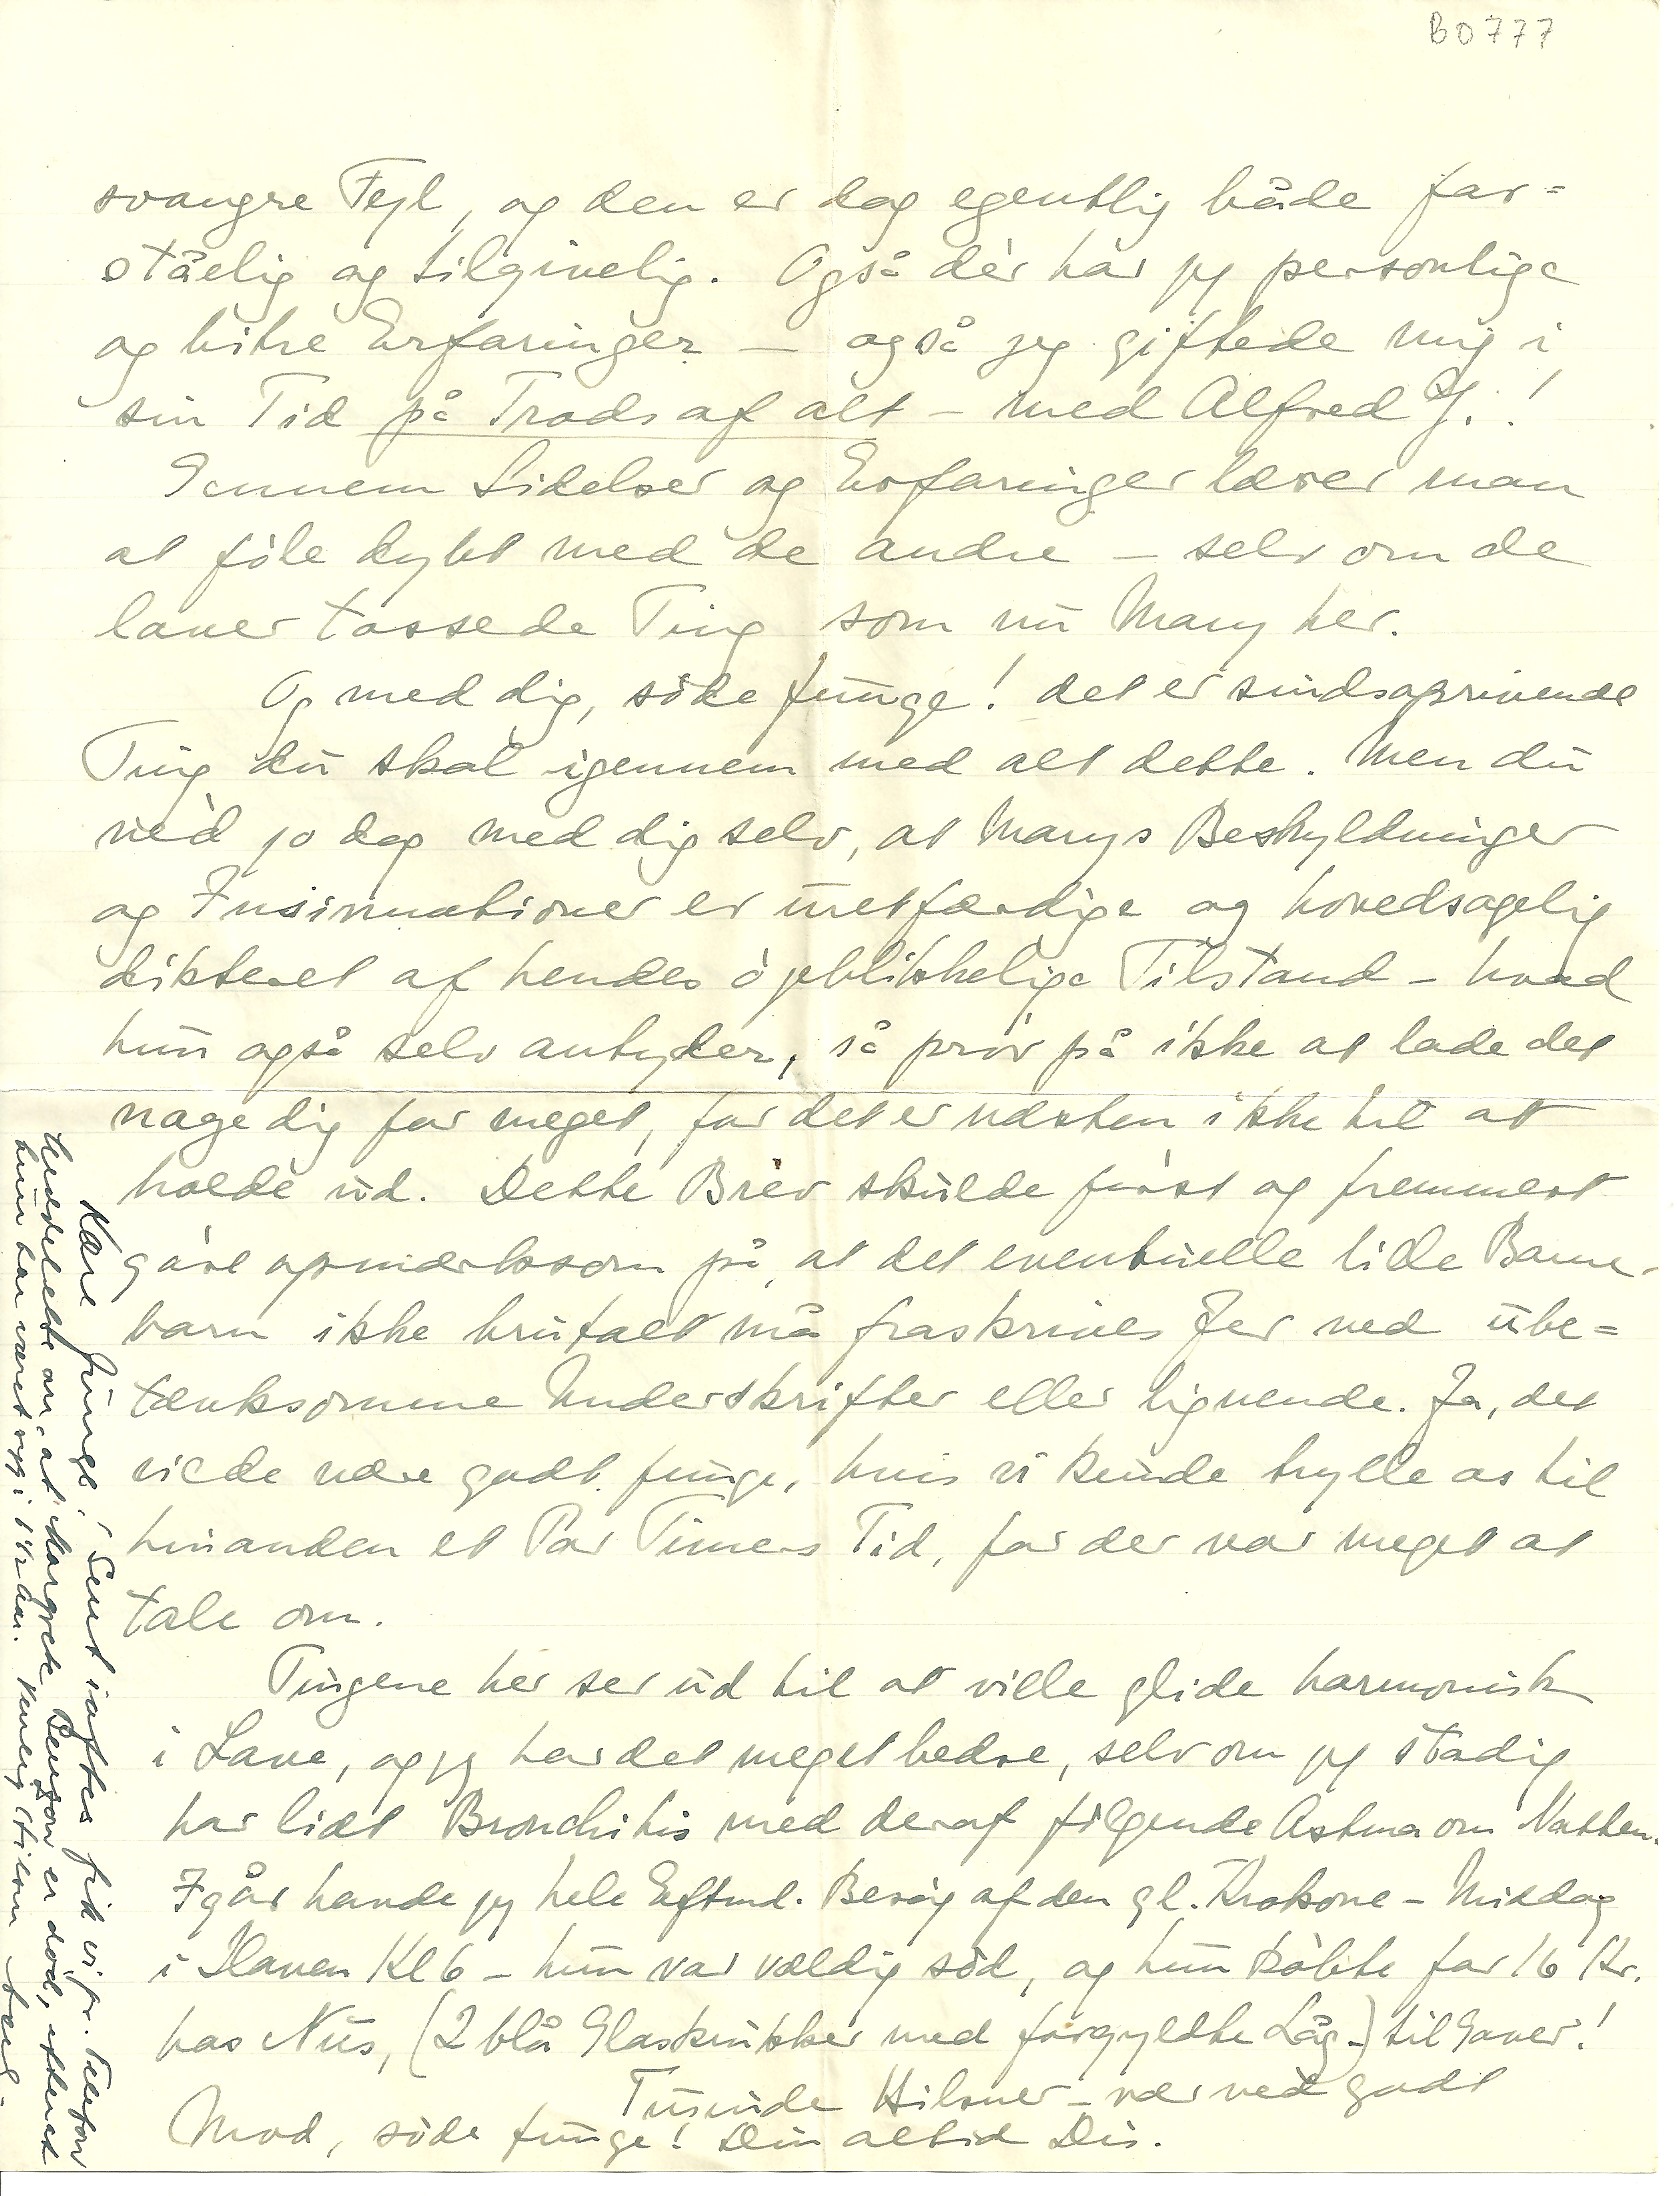 B0777
svangre Fejl, og den er dog egentlig både for=
ståelig og tilgivelig. Også dèr har jeg personlige
og bitre Erfaringer – også jeg giftede mig i
sin Tid på Trods af alt – med Alfred J.!
Gennem Lidelser og Erfaringer lærer man
at föle dybt med de andre – selv om de
laver tossede Ting som nu Mary her.
Og med dig, söde Junge! det er sindsoprivende
Ting du skal igennem med alt dette. Men du
véd jo dog med dig selv, at Marys Beskyldninger
og Insinuationer er uretfærdige og hovedsagelig
dikteret af hendes öjeblikkelige Tilstand – hvad
hun også selv antyder, så pröv på ikke at lade det
nage dig for meget, for det er næsten ikke til at
holde ud. Dette Brev skulde först og fremmest
göre opmærksom på, at det eventuelle lille Barne-
barn ikke brutalt må fraskrives Jer ved ube=
tænksomme Underskrifter eller lignende. Ja, det
vilde være godt, Junge, hvis vi kunde trylle os til
hinanden et Par Timers Tid, for der var meget at
tale om.
Tingene her ser ud til at ville glide harmonisk
i Lave, og jeg har det meget bedre, selv om jeg stadig
har lidt Bronchitis med deraf fölgende Astma om Natten.
Igår havde jeg hele Eftmd. Besög af den gl. Krokone – Middag
i Haven Kl 6 – hun var vældig söd, og hun köbte for 16 Kr.
hos Nus, (2 blå Glaskrukker med forgyldte Låg –) til Gaver!
Tusinde Hilsner – vær ved godt
Mod, söde Junge! Din altid Dis.
Kære Junge! Sent iaftes fik vi pr. Telefon
Meddelelse om, at Margrete Benzon er död, efter at
hun har været syg i 1½ Aar. Kærlig Hilsen